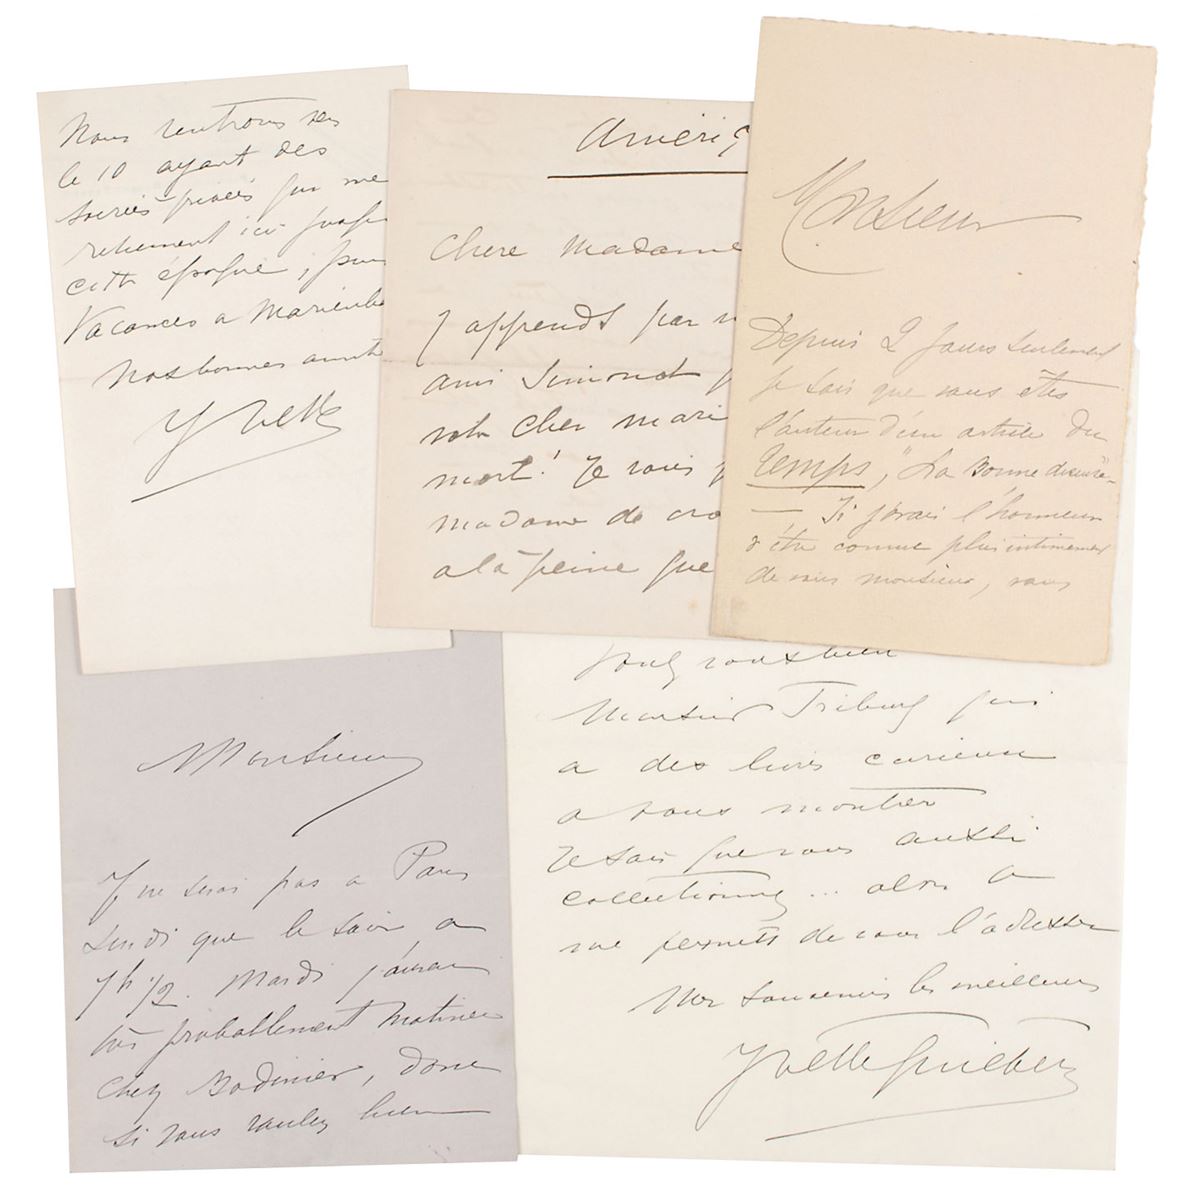 Nous rentrons
le 10 ayant des
soirées privées
ici
cette époque,
Vacances a
Nos bonnes
Yvette
Améri
Chere Madame
J apprends par
ami Simond
votre cher mari
mort! Je vous
madame de cro
a la peine que
Monsieur
Depuis 2 jours seulement
je sais que vous êtes
l'auteur d'un article du
Temps, "La Bonne diseuse"
— Si j'avais l'honneur
d'être connue plus intimement
de vous monsieur, vous
Monsieur
Je ne serai pas a Paris
Lundi que le soir a
7h 1/2. Mardi j'aurai
très probablement Matinée
chez Bodinier, donc
si vous voulez bien
Monsieur qui
a des livres curieux
a vous montrer
Je sais que vous aussi
collectionnez... alors
me permets de vous l'adresser
Mes souvenirs les meilleurs
Yvette Guilbert